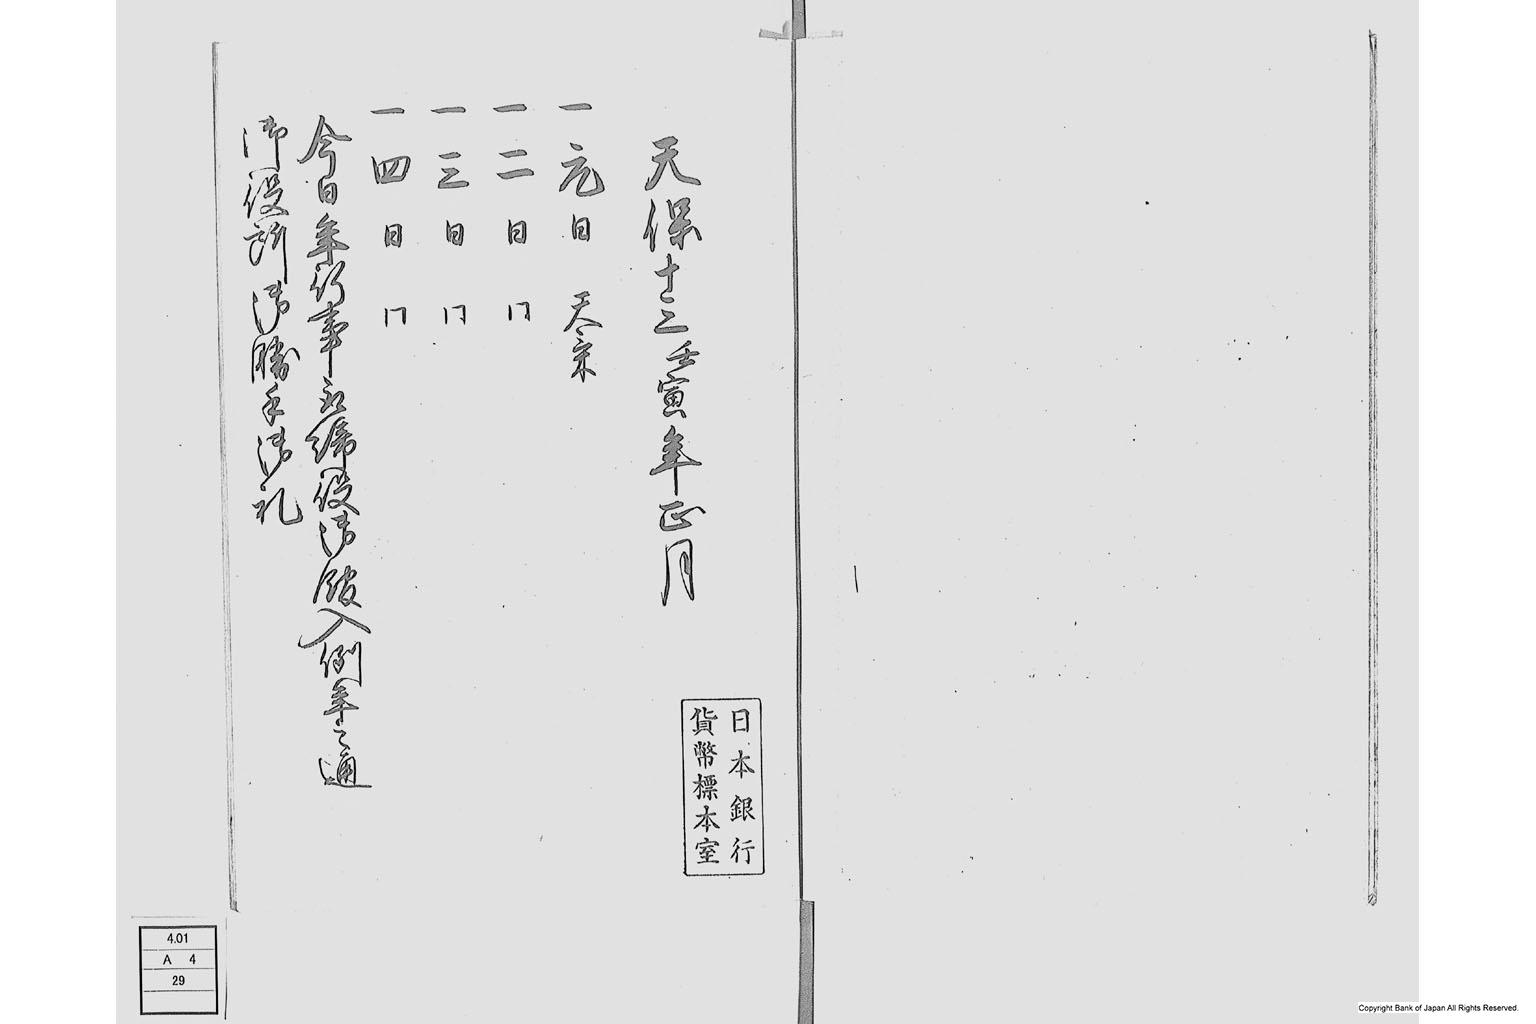 天保十三壬寅年正月
一元日 天気
一二日 同
一三日 同
一四日 同
今日年行事取締役御殿入例年之通
御役所御勝手御礼
日本銀行
貨幣標本室
4.01
A 4
29
Copyright Bank of Japan All Rights Reserved.